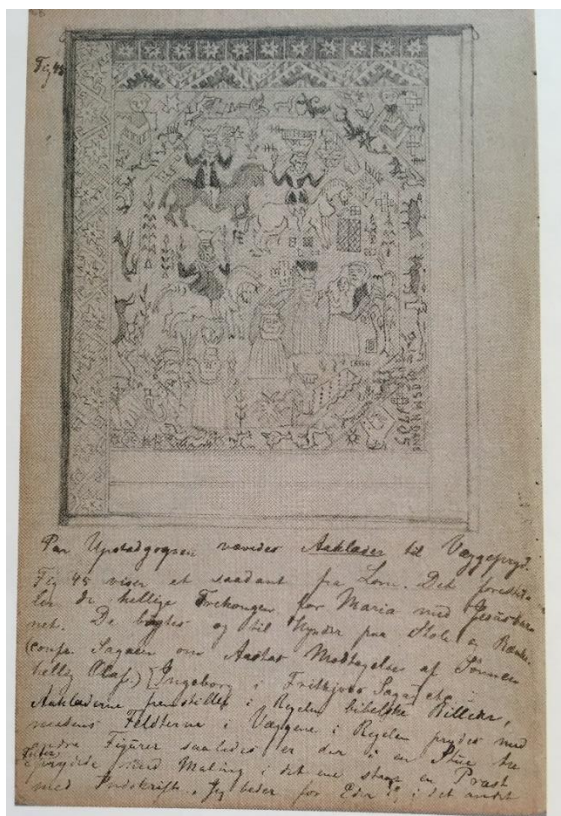 Fig 48
Paa Upstadgogsen vævedes Aaklæder til Væggepryd.
Fig 48 viser et saadant fra Lom. Det forestil
ler de hellige Trekonger for Maria med Jesusbar
net. De brugtes og til Hynder paa Stole og Bænke.
(confr. Sagaen om Aastas Modtagelse af Sønnen
hellig Olaf.) [Ingeborg i Fritkjovs Saga etc.
Aaklæderne fremstiller i Regelen bibelske Billeder,
medens Feldterne i Væggene i Regelen prydes med
andre Figurer saaledes er der i en Stue tre
Felter prydede med Maling i det ene staar en Præst
med Indskrift, Jeg beder for Eder &, i det andet